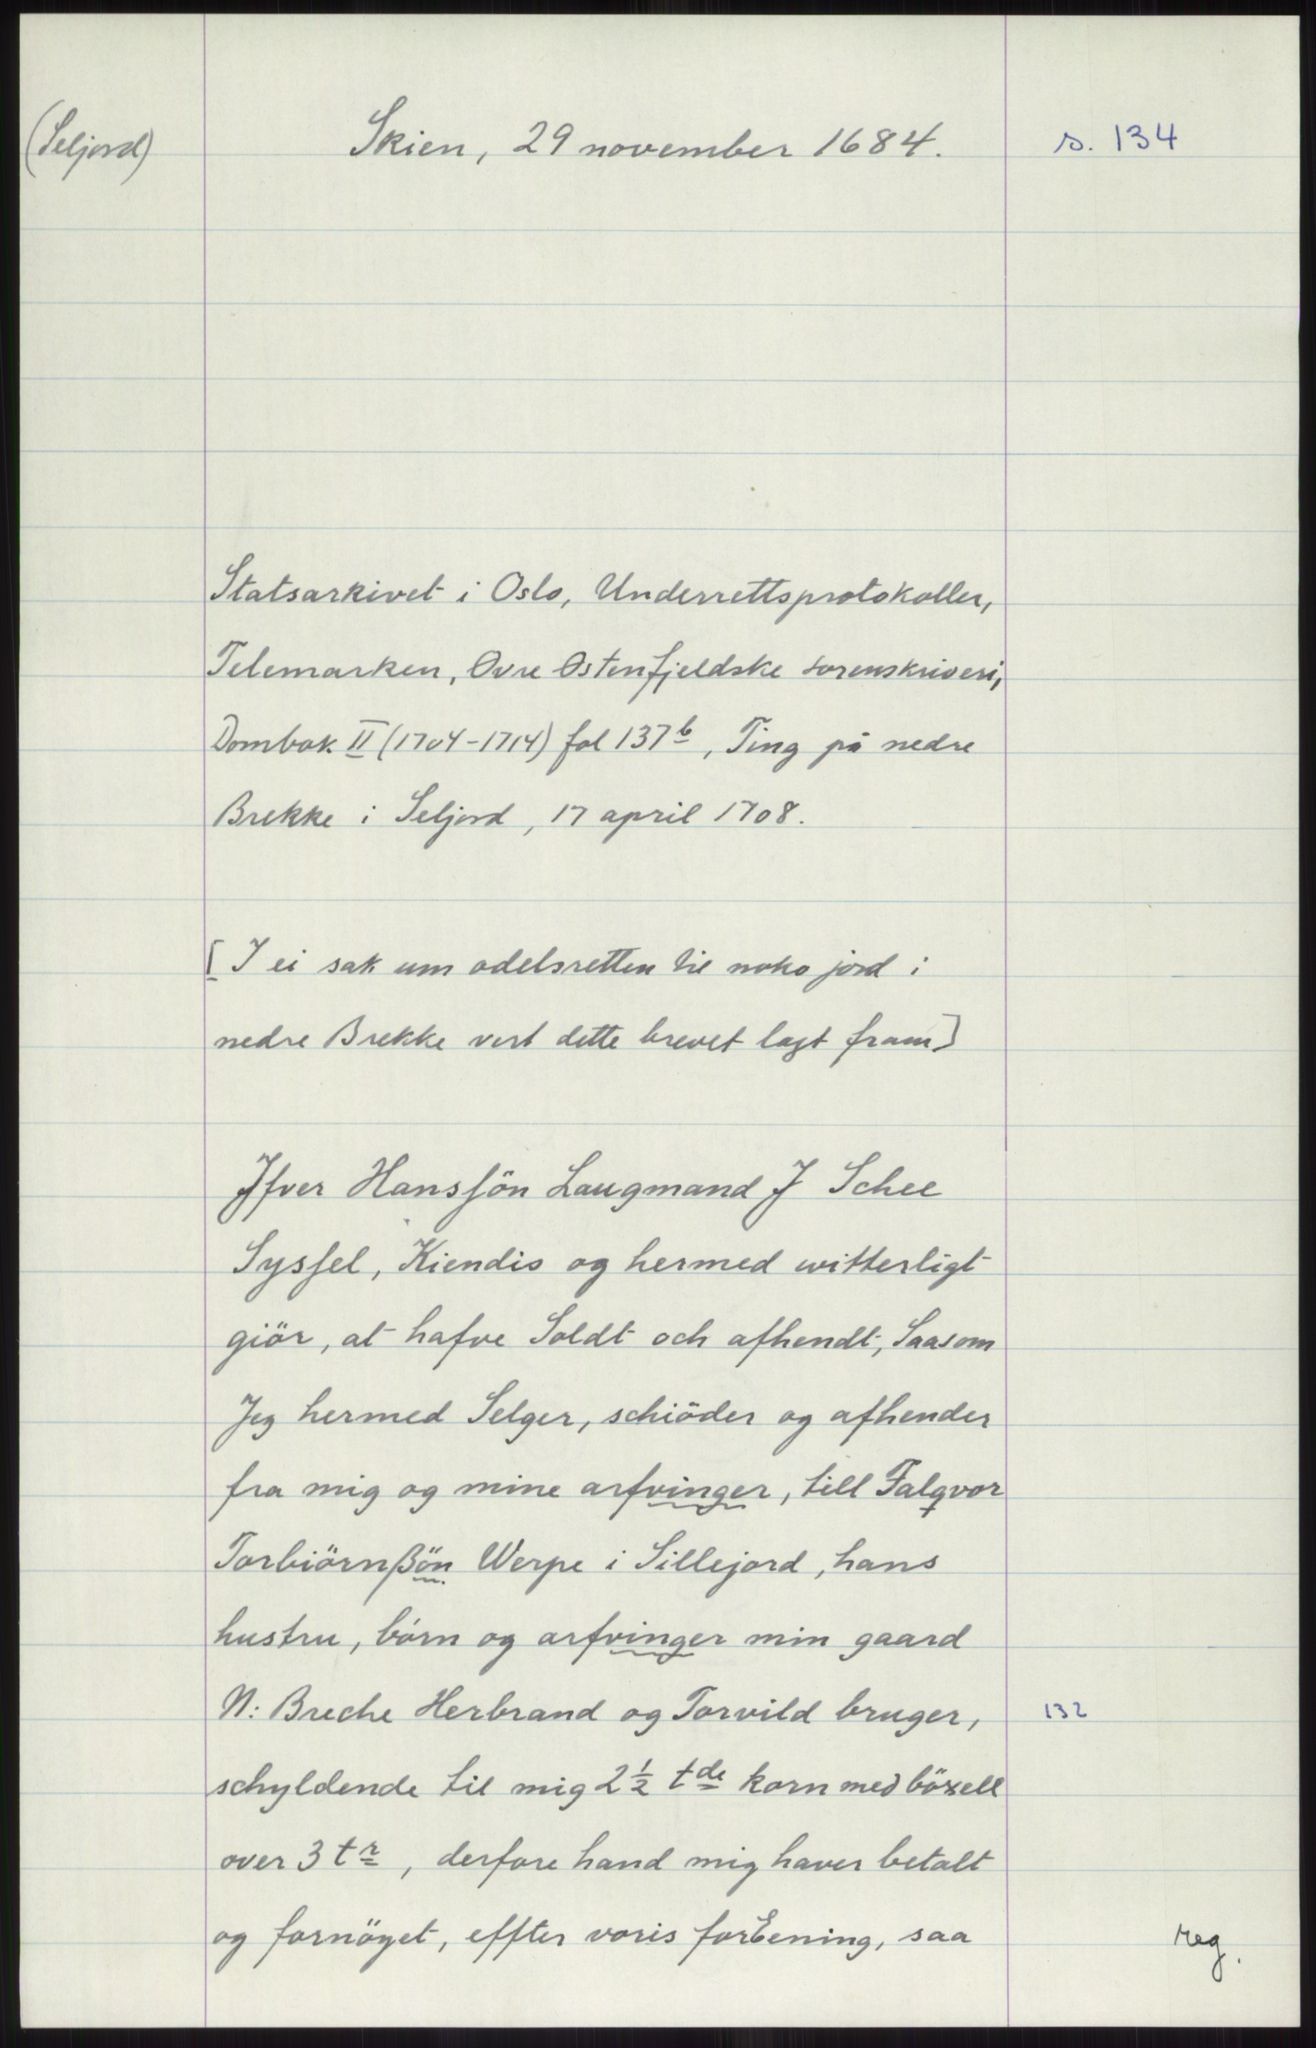 (Seljord)
Skien, 29 november 1684.
s. 134
Statsarkivet i Oslo, Underrettsprotokoller,
Telemarken, Øvre Østenfjeldske sorenskriveri,
Dombok II (1704-1714) fol 137b, Ting på nedre
Brekke i Seljord, 17 april 1708.
[I ei sak um odelsretten til noko jord i
nedre Brekke vert dette brevet lagt fram]
Jfver Hanssön Laugmand J Schee
Syssel, Kiendis og hermed witterligt
giör, at hafve Soldt och afhendt, Saasom
Jeg hermed Selger, schiöder og afhender
fra mig og mine arfvinger, till Falqvor
Torbiörnßön Werpe i Sillejord, hans
hustru, börn og arfvinger min gaard
N: Breche Herbrand og Torvild bruger,
132
schyldende til mig 2½ tde korn med böxell
over 3 tr, derfore hand mig haver betalt
og fornöyet, effter voris forEening, saa
reg.